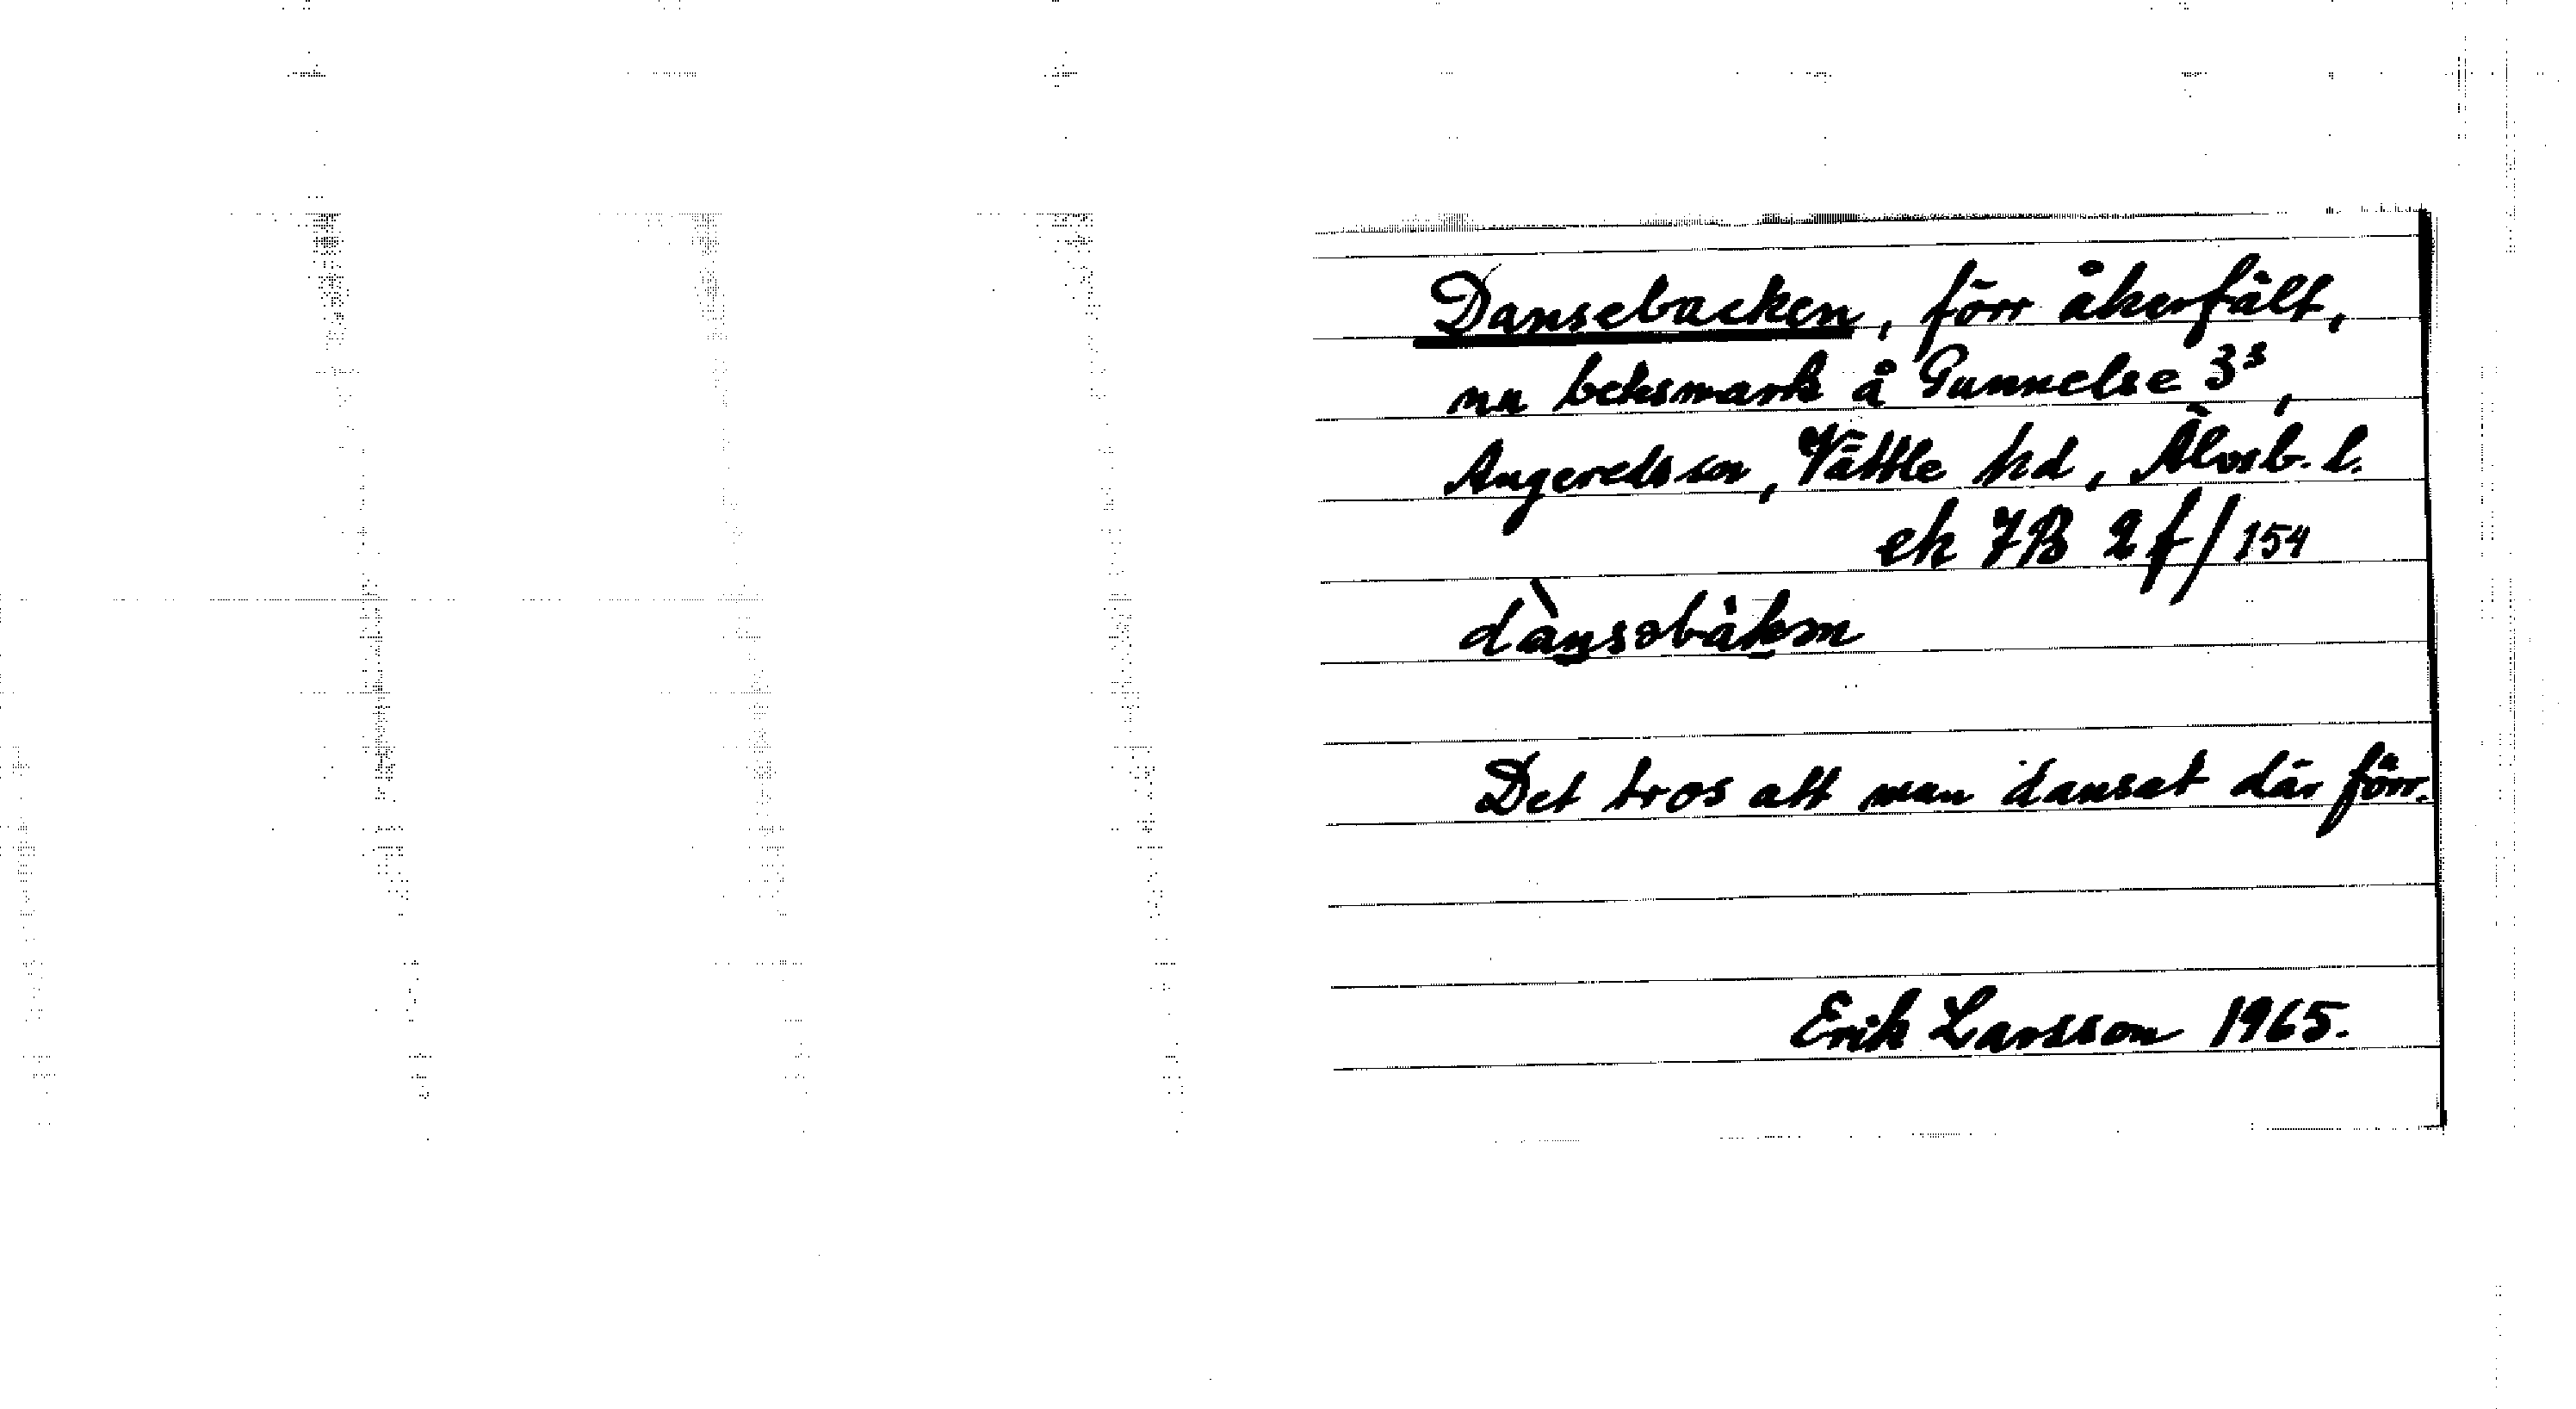 Dansebacken, förr åkerfält,
nu betesmark å Gunnelse 3³,
Angereds sn, Vättle hd, Älvsb. l.
ek 7B 2f/154
dànsəbàkən
Det tros att man dansat där förr.
Erik Larsson 1965.